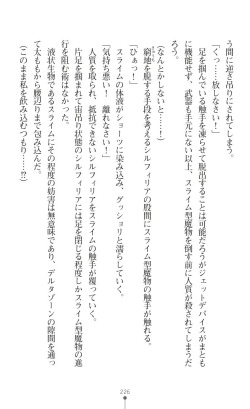 う間に逆さ吊りにされてしまう。
「くっ……放しなさい！」
足を掴んでいる触手を凍らせて脱出することは可能だろうがジェットデバイスがまとも
に機能せず、武器も手元にない以上、スライム型魔物を倒す前に人質が殺されてしまうだ
ろう。
（なんとかしないと……！）
窮地を脱する手段を考えるシルフィリアの股間にスライム型魔物の触手が触れる。
「ひぁっ！」
スライムの体液がショーツに染み込み、グッショリと濡らしていく。
「気持ち悪い！　離れなさい！」
人質を取られ、抵抗できないシルフィリアをスライムの触手が覆っていく。
片足を掴まれて宙吊り状態のシルフィリアには足を閉じる程度しかスライム型魔物の進
行を阻む術はなかった。
液状生物であるスライムにその程度の妨害は無意味であり、デルタゾーンの隙間を通っ
て太ももから腰辺りまで包み込んだ。
（このまま私を飲み込むつもり……!?）
226